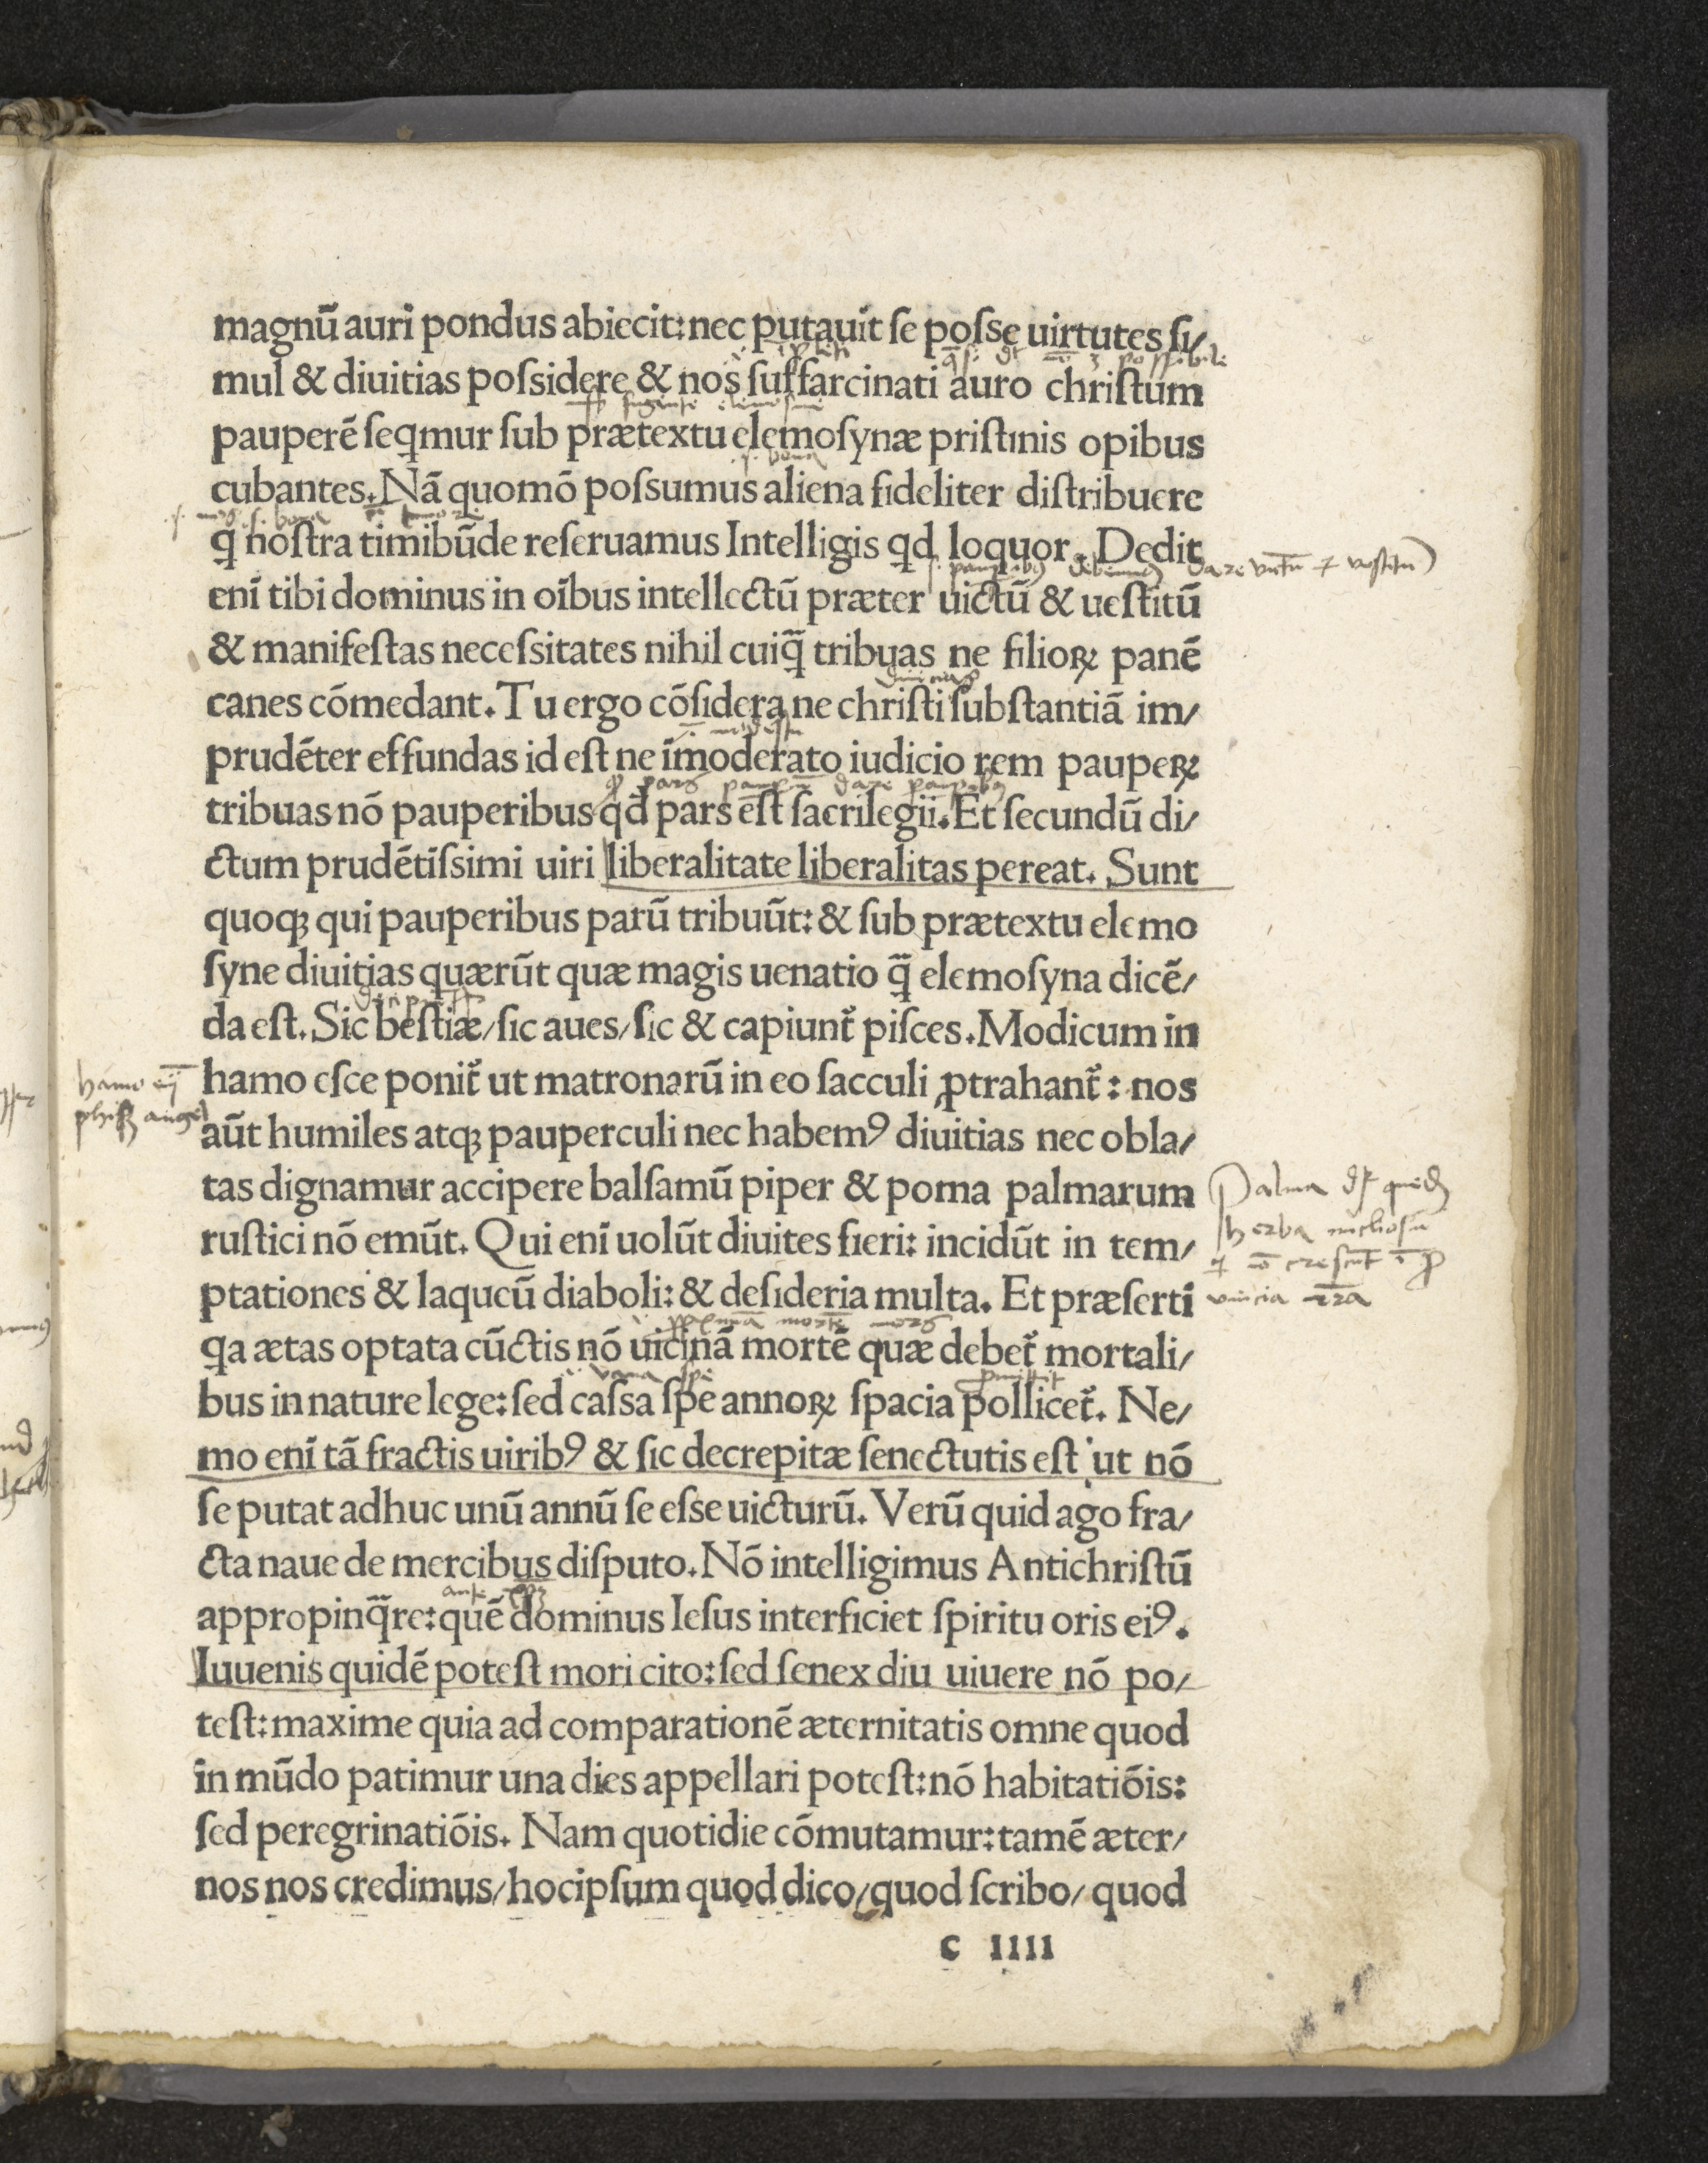 magnū auri pondus abiecit: nec putauit se posse uirtutes si/
mul & diuitias possidere & nos suffarcinati auro christum
pauperē seqmur sub prætextu elemosynæ pristinis opibus
cubantes. Nā quomō possumus aliena fideliter distribuere
q̄ nostra timibūde reseruamus Intelligis qd loquor. Dedit
enī tibi dominus in oībus intellectū præter uictū & uestitū
& manifestas necessitates nihil cuiq̄ tribuas ne filioꝝ panē
canes cōmedant. Tu ergo cōsidera ne christi substantiā im/
prudēter effundas id est ne īmoderato iudicio rem paupeꝝ
tribuas nō pauperibus qd pars est sacrilegii. Et secundū di/
ctum prudētissimi uiri liberalitate liberalitas pereat. Sunt
quoqꝫ qui pauperibus parū tribuūt: & sub prætextu elemo
syne diuitias quærūt quæ magis uenatio q̄ elemosyna dicē/
da est. Sic bestiæ/ sic aues/ sic & capiunt̃ pisces. Modicum in
hamo esce ponit̃ ut matronarū in eo sacculi ꝓtrahant̃: nos
aūt humiles atqꝫ pauperculi nec habemꝰ diuitias nec obla/
tas dignamur accipere balsamū piper & poma palmarum
rustici nō emūt. Qui enī uolūt diuites fieri: incidūt in tem/
ptationes & laqueū diaboli: & desideria multa. Et præsertī
qa ætas optata cūctis nō uicinā mortē quæ debet̃ mortali/
bus in nature lege: sed cassa spe annoꝝ spacia pollicet̃. Ne/
mo enī tā fractis uiribꝰ & sic decrepitæ senectutis est ut nō
se putat adhuc unū annū se esse uicturū. Verū quid ago fra/
cta naue de mercibus disputo. Nō intelligimus Antichristū
appropinq̄re: quē dominus Iesus interficiet spiritu oris eiꝰ.
Iuuenis quidē potest mori cito: sed senex diu uiuere nō po/
test: maxime quia ad comparationē æternitatis omne quod
in mūdo patimur una dies appellari potest: nō habitatiōis:
sed peregrinatiōis. Nam quotidie cōmutamur: tamē æter/
nos nos credimus/ hocipsum quod dico/ quod scribo/ quod
c IIII
hamo
Palma
herba